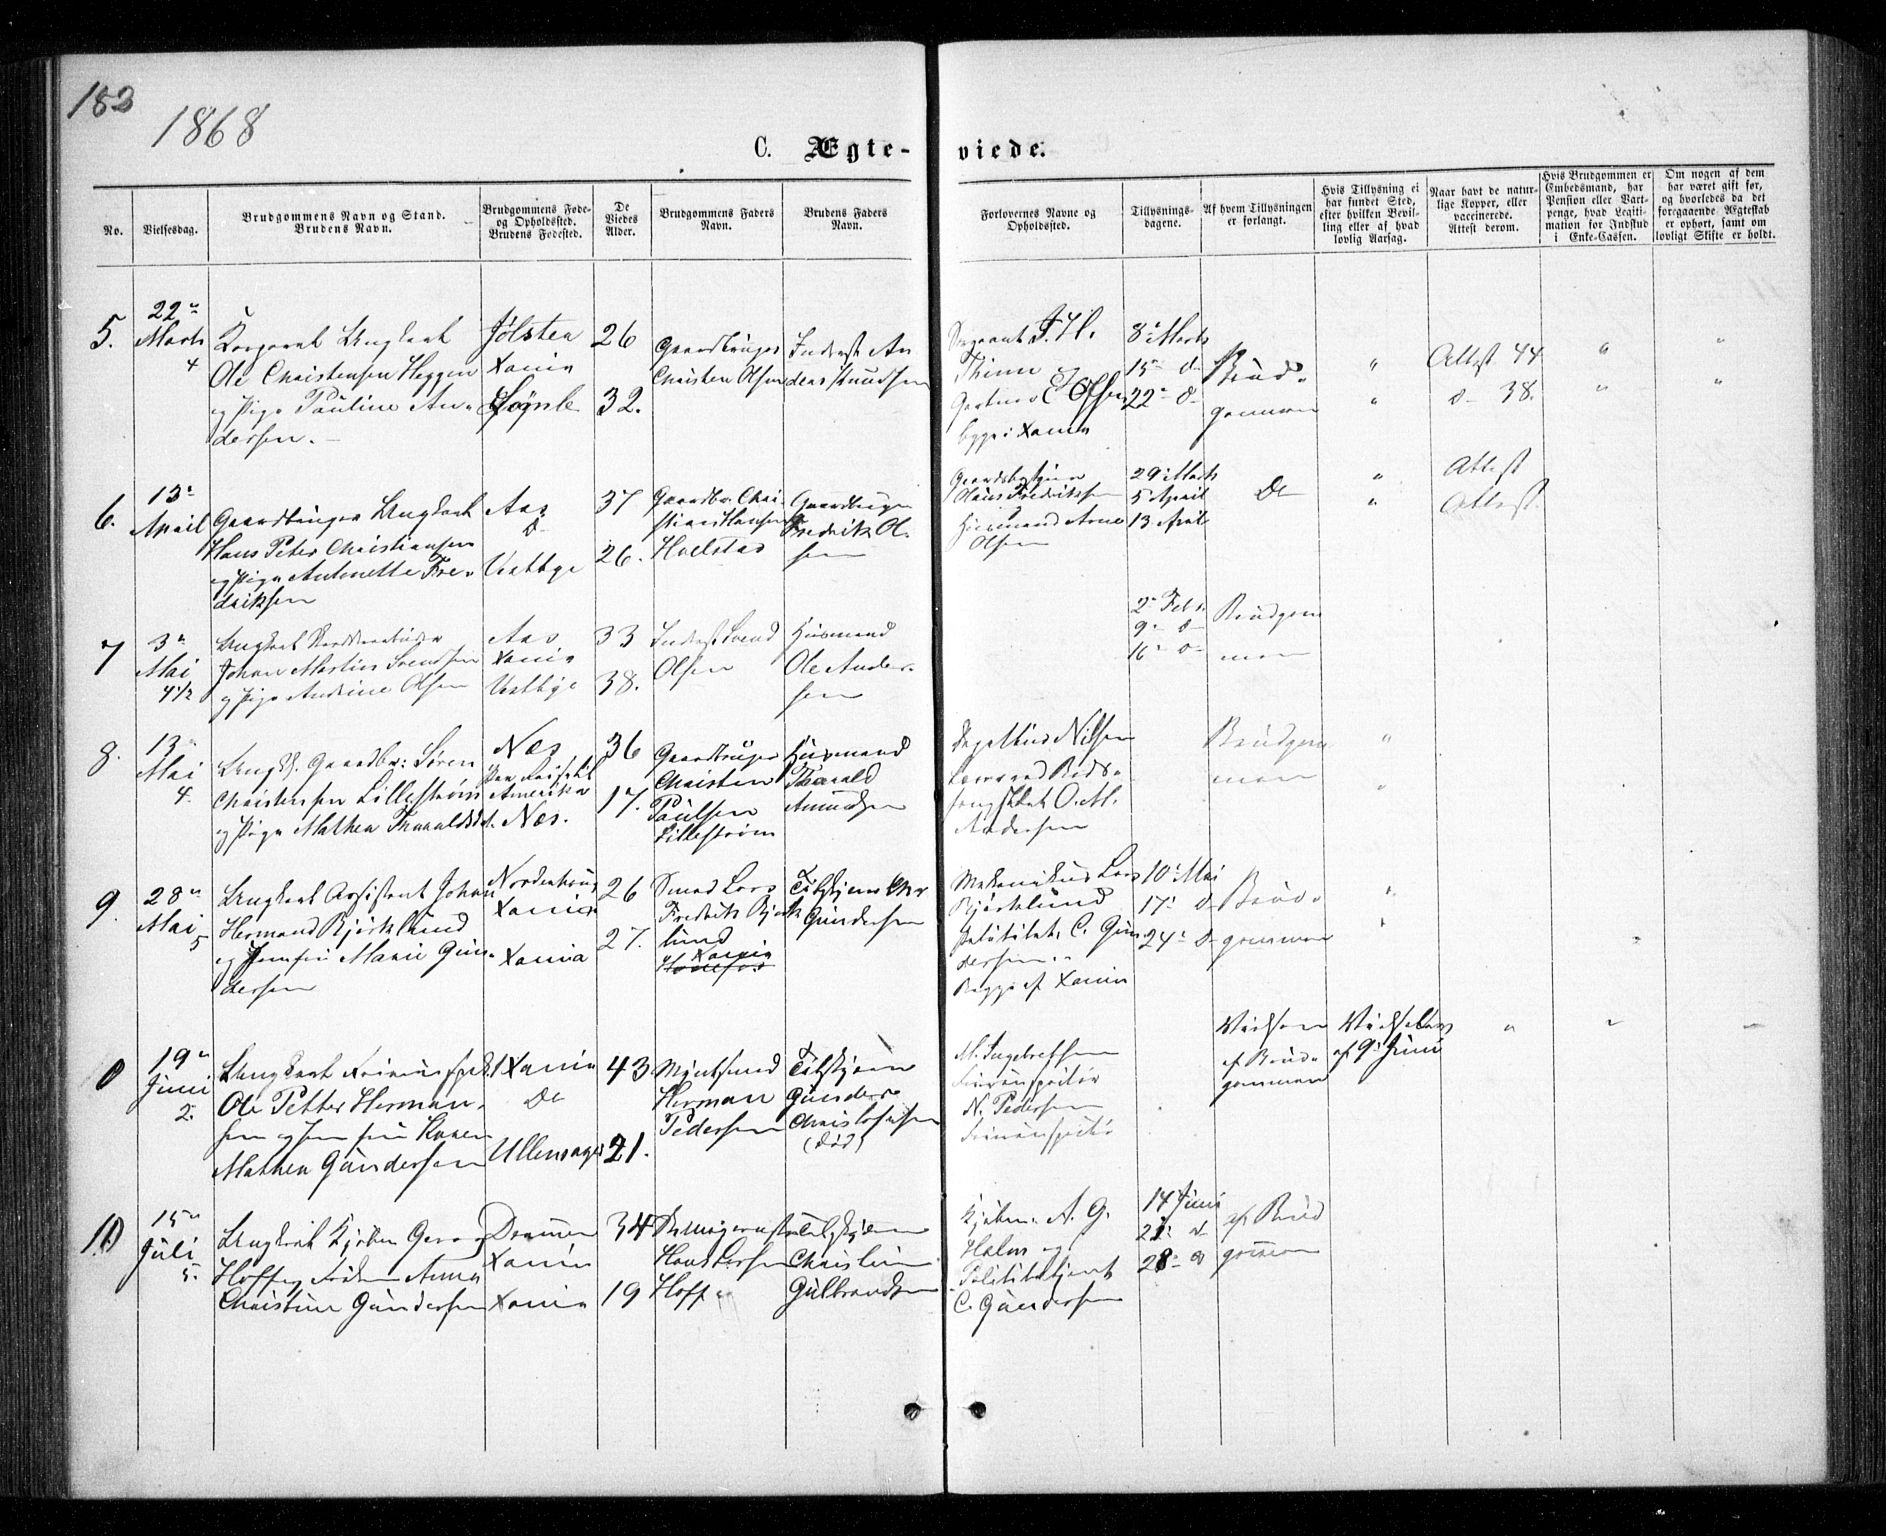 183
1868
C. Ægte-
viede.
No.
Vielsesdag.
Brudgommens Navn og Stand.
Brudens Navn.
Brudgommens Føde-
og Opholdssted.
Brudens Fødested.
De
Viedes
Alder.
Brudgommens Faders
Navn.
Brudens Faders
Navn.
Forlovernes Navne og
Opholdssted.
Tillysnings-
dagene.
Af hvem Tillysningen
er forlangt.
Hvis Tillysning ei
har fundet Sted,
efter hvilken Bevil-
ling eller af hvad
lovlig Aarsag.
Naar havt de natur-
lige Kopper, eller
vaccinerede.
Attest derom.
Hvis Brudgommen er
Embedsmand, har
Pension eller Vart-
penge, hvad Legiti-
mation for Indskud
i Enke-Cassen.
Om nogen af dem
har været gift før,
og hvorledes da det
foregaaende Ægteskab
er ophørt, samt om
lovligt Skifte er holdt.
5.
22
Marts
4
Korporal Ungkarl
Ole Christensen Heggen
og Pige Pauline An-
dersen.
Jölster
Xania
26
32.
Gaardbruger
Christen Olsen
Inderst An
ders Knudsen
Sergeant J. H.
Thinn og
Gartner C Olsen
begge i Xania
8 Marts
15 d
22 d
Brud-
gommen
"
"
Attest 44
d 38.
"
"
"
"
6.
13
April
Gaardbruger Ungkarl
Hans Peter Christiansen
og Pige Antonette Fre-
driksen
Aas
D
Vestbye
37
26.
Gaardbr. Chri-
stian Hansen
Holstad
Gaardbruger
Fredrik Ol-
sen
Gaardbruger
Hans Fredriksen
Husmand Arne
Olsen
29 Marts
5 April
13 April
Do
"
"
Attest
Attest.
7
3
Mai
4 1/2
Ungkarl
Johan Martin Svendsen
og Pige Andrine Olsen
Aas
Xania
Vestbye
33
38.
Inderst Svend
Olsen
Husmand
Ole Ander-
sen
2 Feb
9 d
16 d
Brudgom
men
8.
13
Mai
4.
Ungk. Gaardbr: Sören
Christensen Lilleström
og Pige Mathea Tharaldsd.
Næs
Amerika
Næs.
36
17.
Gaardbruger
Christen
Paulsen
Lilleström
Husmand
Tharald
Amundsen
Nilsen
O. M.
Andersen
Brudgom
men
"
"
9.
28
Mai
5
Ungkarl Assistent Johan
Hermand Björklund
og Jomfru Marie Gun-
dersen
Norderhoug
Xania
Xania
26
27.
Smed Lars
Fredrik Björk
lund
Xania
Hönefos
Chr
Gundersen
Mekanikus Lars
Björklund
Politibet. C. Gun
dersen
Begge af Xania
10 Mai
17 d
24 d
Brud-
gommen
"
"
0
19
Juni
2.
Ungkarl
Ole Petter Herman-
sen og Jomfru Karen
Mathea Gundersen
Xania
Do
Ullensager
43
21.
Herman
Pedersen
Gunder
Christofersen
(död)
M. Ingebretsen
N. Pedersen
af Brud-
gommen
af 9 Juni
"
"
"
10
15
Juli
5.
Ungkarl Kjöbm Georg
Hoff og Anna
Christine Gundersen
Drammen
Xania
Xania
34
19
Hans Larsen
Hoff
Christian
Gulbrandsen
Kjöbm. A. G.
Holm og
Politibetjent
C. Gundersen
14 Juni
21 d
28 d
af Brud
gommen